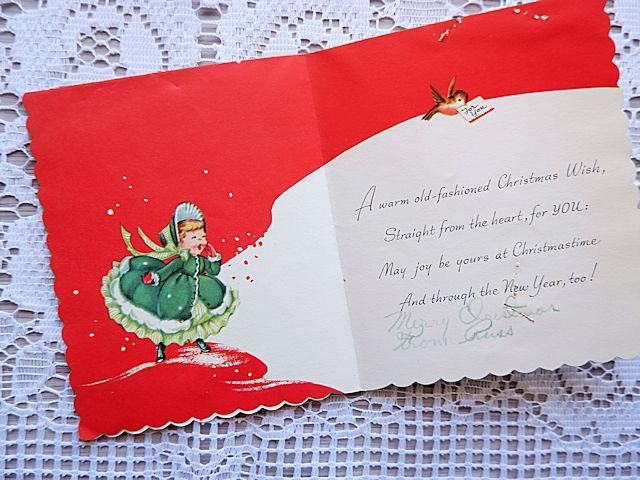 For
You
A warm old-fashioned Christmas Wish,
Straight from the heart, for YOU:
May joy be yours at Christmastime
And through the New Year, too!
Merry Christmas
from Russ